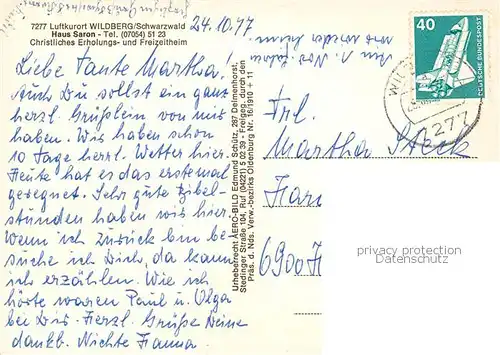 7277 Luftkurort WILDBERG/Schwarzwald
Haus Saron - Tel. (07054) 51 23
Christliches Erholungs- und Freizeitheim
24.10.77
Liebe Tante Martha!
Auch Du sollst ein ganz
herzl. Grüßlein von mir
haben. Wir haben schon
10 Tage herrl. Wetter hier.
Heute hat es das erstemal
geregnet. Sehr gute Bibel-
stunden haben wir hier
wenn ich zurück bin be-
suche ich Dich, da kann
ich erzählen. Wie ich
hörte waren Paul u. Olga
bei Dir. Herzl. Grüße Deine
dankb. Nichte Hanna.
Urheberrecht AERO-BILD Edmund Schütz, 287 Delmenhorst,
Stedinger Straße 104, Ruf (04221) 5 02 39 - Freigeg. durch den
Präs. d. Nds. Verw.-bezirks Oldenburg Nr. 16/1910 + 11
40
DEUTSCHE BUNDESPOST
7277
Frl.
Martha Steck
6900
privacy protection
Datenschutz